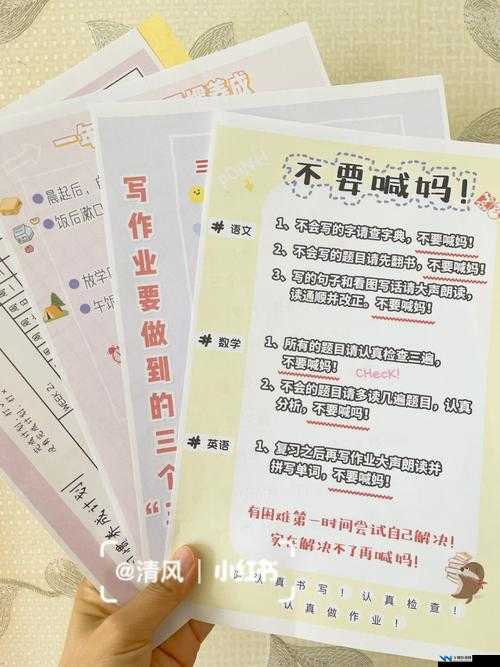 不要喊妈！
# 语文
1、不会写的字请查字典，不要喊妈！
2、不会写的题目请先翻书，不要喊妈！
3、写的句子和看图写话请大声朗读，
读通顺并改正，不要喊妈！
# 数学
1、所有的题目请认真检查三遍，
不要喊妈！
CHecK!
2、不会的题目请多读几遍题目，认真
分析，不要喊妈！
# 英语
1、复习之后再写作业大声朗读并
拼写单词，不要喊妈！
有困难第一时间尝试自己解决！
实在解决不了再喊妈！
认真书写！认真检查！
认真做作业！
写作业要做到的三个
晨起后，
饭后漱口
放学
午饭
WEEK 2
@清风 | 小红书